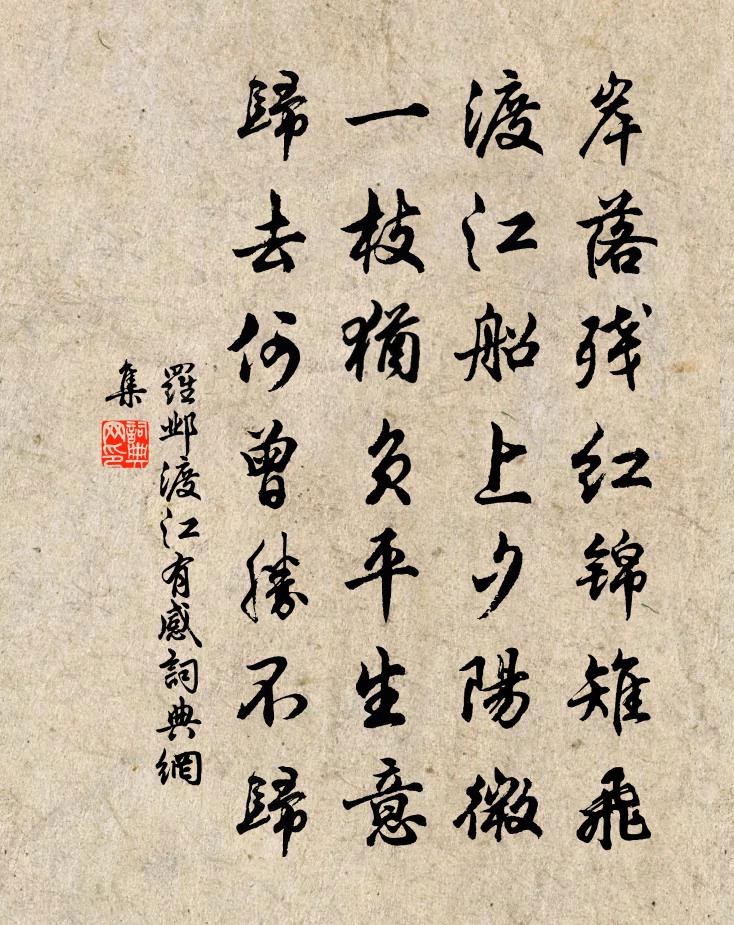 岸落残红锦雉飛
渡江船上夕陽微
一枝猶負平生意
歸去何曾勝不歸
羅邺渡江有感詞典網
集
詞典
网印